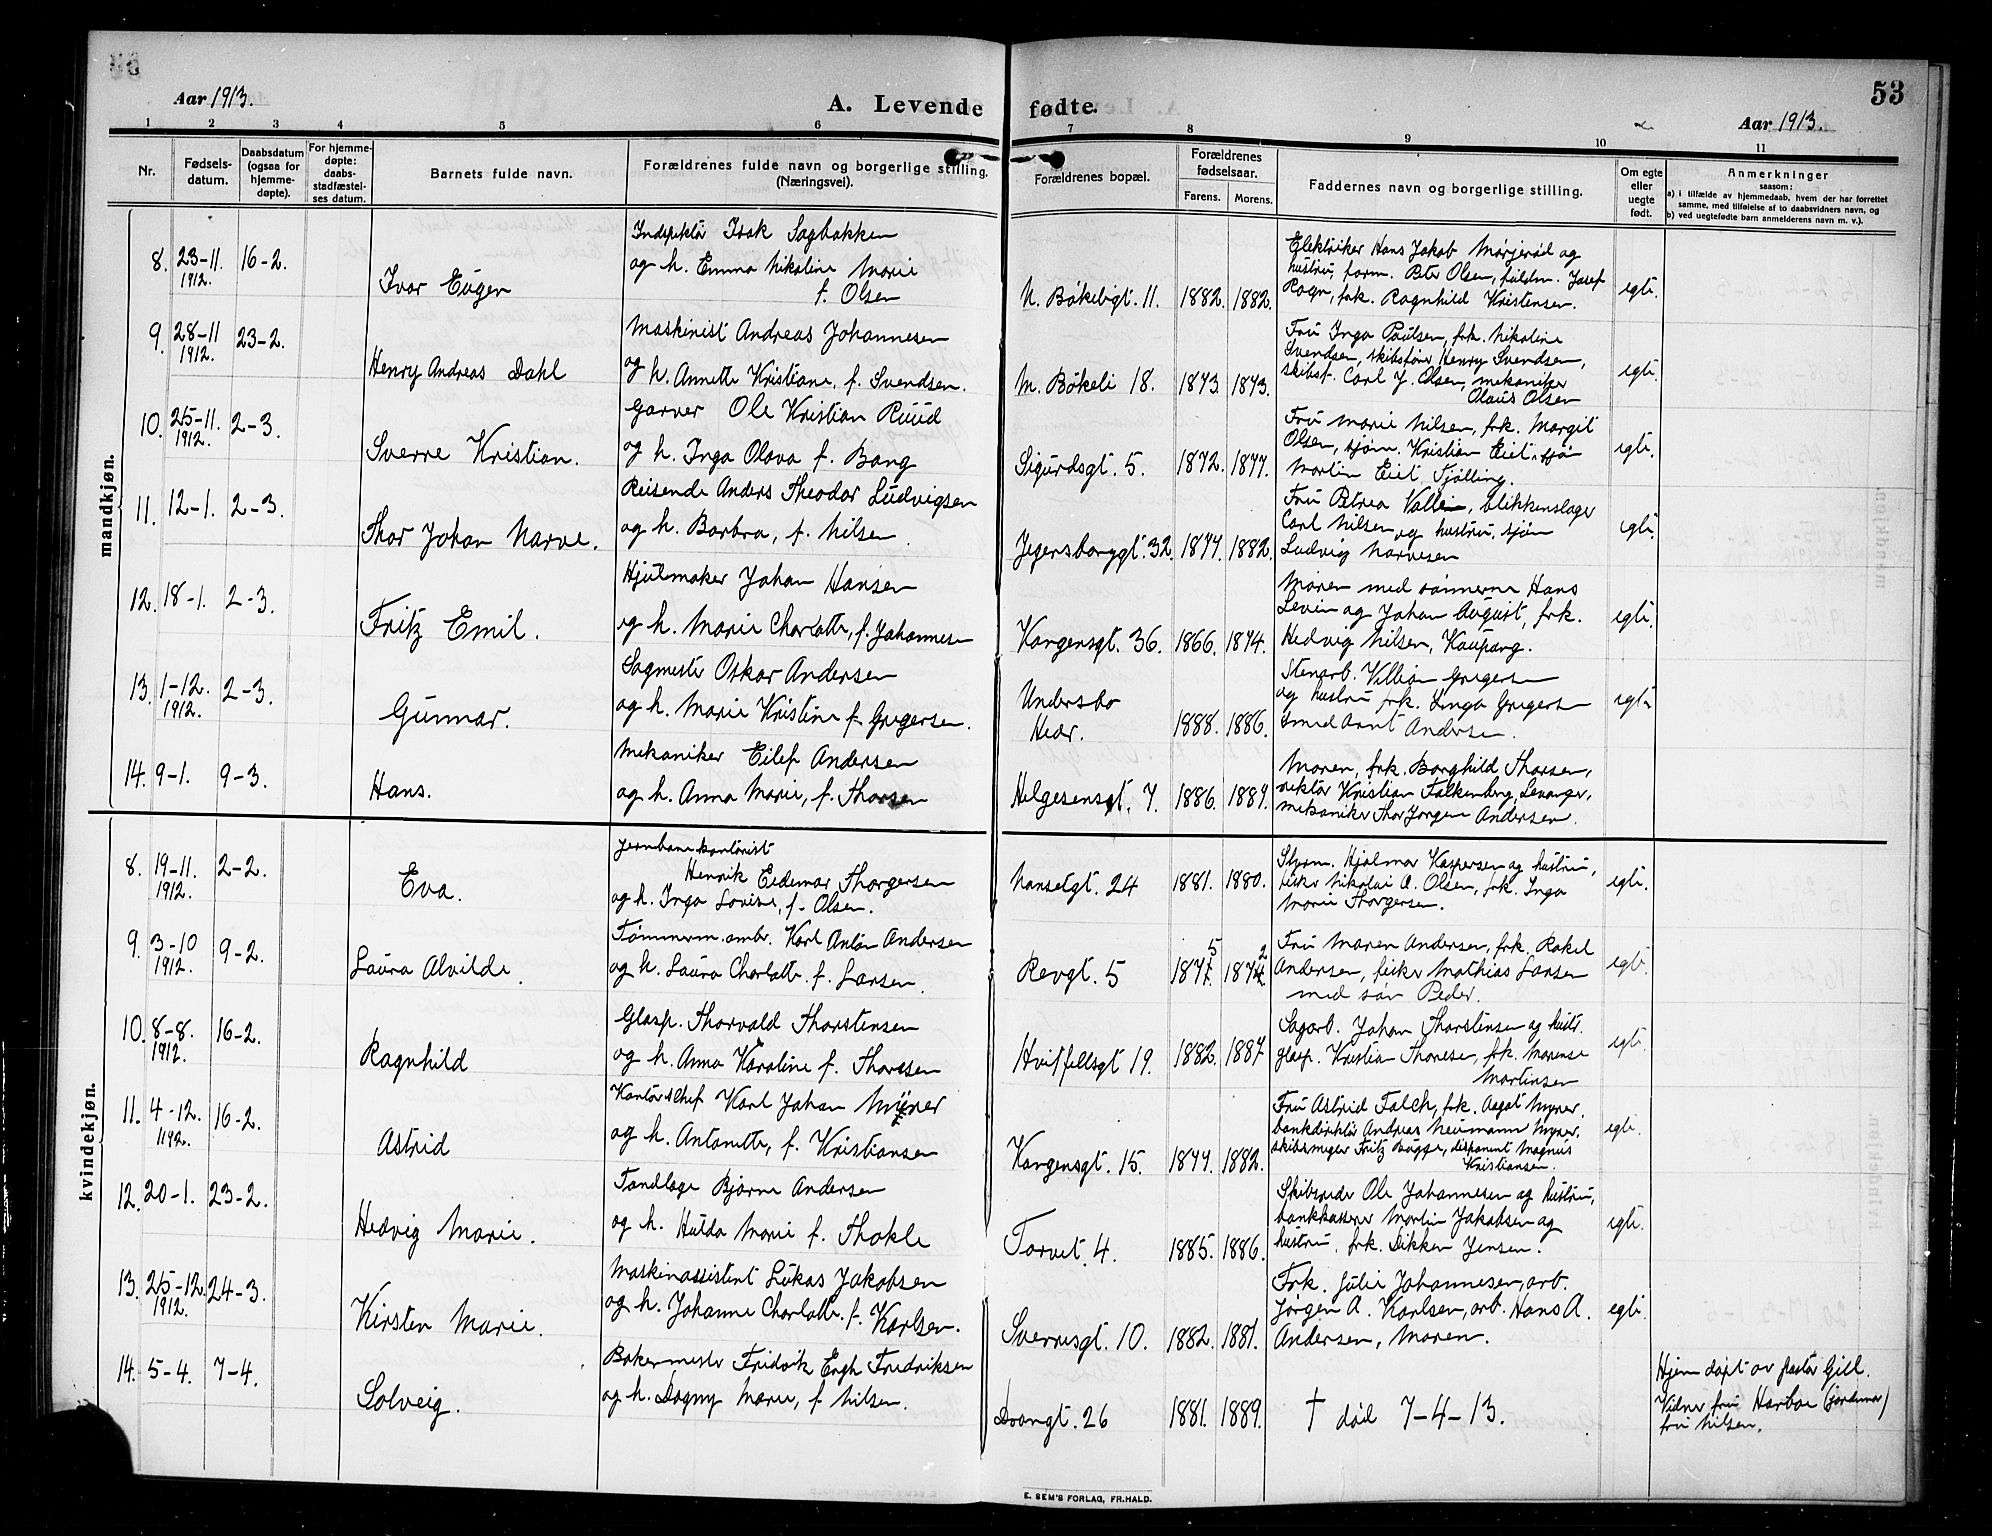 53
Aar 1913.
A. Levende fødte.
Aar 1913.
1 2 3 4 5 6 7 8 9 10 11
Nr.
Fødsels-
datum.
Daabsdatum
(ogsaa for
hjemme-
døpte).
For hjemme-
døpte:
daabs-
stadfæstel-
ses datum.
Barnets fulde navn.
Forældrenes fulde navn og borgerlige stilling.
(Næringsvei).
Forældrenes bopæl.
Forældrenes
fødselsaar.
Farens. Morens.
Faddernes navn og borgerlige stilling.
Om egte
eller
uegte
født.
Anmerkninger
saasom:
a) i tilfælde av hjemmedaab, hvem der har forrettet
samme, med tilføielse af to daabsvidners navn, og
b) ved uegtefødte barn anmelderens navn m. v.).
mandkjøn.
8. 23-11. 1912. 16-2.
Ivar Eugen
Indspektör Isak Sagbakken
og h. Emma Nikoline Marie
f. Olsen
N. Bökeligt. 11. 1882. 1882.
Elektriker Hans Jakob og
hustru, form. Peter Olsen, fuldm. Josef
Rogn, frk. Ragnhild Kristensen.
egte.
9. 28-11 1912. 23-2.
Henry Andreas Dahl
Maskinist Andreas Johannesen
og h. Annette Kristiane, f. Svendsen.
M. Bökeli 18. 1873. 1873.
Fru Inga Paulsen, frk. Nikoline
Svendsen, skibsförer Henry Svendsen,
skibsf. Carl J. Olsen, mekaniker
Olaus Olsen
egte.
10. 25-11. 1912. 2-3.
Sverre Kristian.
Garver Ole Kristian Ruud
og h. Inga Olava f. Bang
Sigurdsgt. 5. 1872. 1877.
Fru Marie Nilsen, frk. Margit
Olsen, sjöm. Kristian Eiet, sjöm
Martin Eiet Tjölling.
egte.
11. 12-1. 2-3.
Thor Johan Narve.
Reisende Anders Theodor Ludvigsen
og h. Barbra, f. Nilsen.
Jegersborggt. 32. 1877. 1882.
Fru Petrea Vallein, blikkenslager
Carl Nilsen og hustru, sjöm
Ludvig Narvesen
egte.
12. 18-1. 2-3.
Fritz Emil.
Hjulmaker Johan Hansen
og h. Marie Charlotte, f. Johannesen
Kongensgt. 36. 1866. 1874.
Moren med sönnerne Hans
Levin og Johan August, frk.
Hedvig Nilsen, Kaupang.
egte.
13. 1-12. 1912. 2-3.
Gunnar.
Sagmester Oskar Andersen
og h. Marie Kristine f. Gregersen.
Undersbo
Hedr. 1888. 1886.
Stenarb. Villiam Gregersen
og hustru frk. Inga Gregersen
smed Arnt Andersen.
egte
14. 9-1. 9-3.
Hans.
Mekaniker Eilef Andersen
og h. Anna Marie, f. Thorsen
Helgesensgt. 7. 1886. 1887.
Moren, frk. Borghild Thorsen,
rektör Kristian Falkenberg, Levanger,
mekaniker Thor Jörgen Andersen.
kvindekjøn.
8. 19-11. 1912. 2-2.
Eva.
Jernbanekontorist
Henrik Eidemar Thorgersen
og h. Inga Lovise, f. Olsen.
Nansetgt. 24 1881. 1880.
Styrm. Hjalmar Kaspersen og hustru,
fisker Nikolai A. Olsen, frk. Inga
Marie Thorgersen.
egte.
9. 3-10 1912. 9-2.
Laura Alvilde.
Tömmerm. ambr. Karl Anton Andersen
og h. Laura Charlotte. f. Larsen.
Revgt. 5 1877. 5 1874 2
Fru Maren Andersen, frk. Rakel
Andersen, fisker Mathias Larsen
med sön Peder.
egte.
10. 8-8. 1912. 16-2.
Ragnhild
Glasp. Thorvald Thorstensen
og h. Anna Karoline f. Thoresen
Hvitfeltsgt 19. 1882. 1887
Sagarb. Johan Thorstensen og hustr.
glasp. Kristian Thoresen, frk. Marense
Martinsen
egte.
11. 4-12. 1192. 16-2.
Astrid
Kontorschef Karl Johan Myrer
og h. Antonette, f. Kristiansen
Kongensgt. 15. 1877. 1882.
Fru Astrid Falch, frk. Aagot Myrer.
bankdirektör Andreas Neumann Myrer.
skibsmegler Fritz Bugge, disponent Magnus
Kristiansen.
egte.
12. 20-1. 23-2.
Hedvig Marie.
Tandlæge Bjarne Andersen
og h. Hulda Marie f. Thokle
Torvet. 4. 1885. 1886.
Skibsreder Ole Johannesen og hustru,
bankkasserer Martin Jakobsen og
hustru, frk. Dikken Jensen.
egte.
13. 25-12. 1912. 24-3.
Kirsten Marie.
Maskinassistent Lukas Jakobsen
og h. Johanne Charlotte. f. Karlsen.
Sverresgt. 10. 1882. 1881.
Frk. Julie Johannesen, arb.
Jörgen A. Karlsen, arb. Hans A.
Andersen, moren.
egte.
14. 5-4. 7-4.
Solveig.
Bakermester Fridvik Engh Fredriksen
og h. Dagny Marie, f. Nilsen.
Dronngt. 26 1881. 1889.
† död 7-4-13.
Hjem döpt av pastor Gill.
Vidner fru Harboe (jordmor)
fru Nilsen.
E. SEM'S FORLAG, FR.HALD.